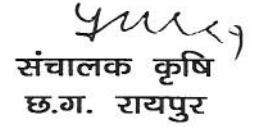 संचालक कृषि
छ.ग. रायपुर